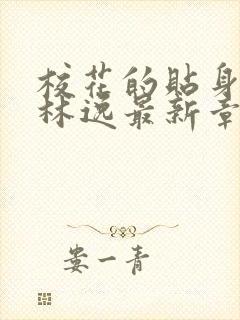 校花的貼身
林逸最新章
娄一青